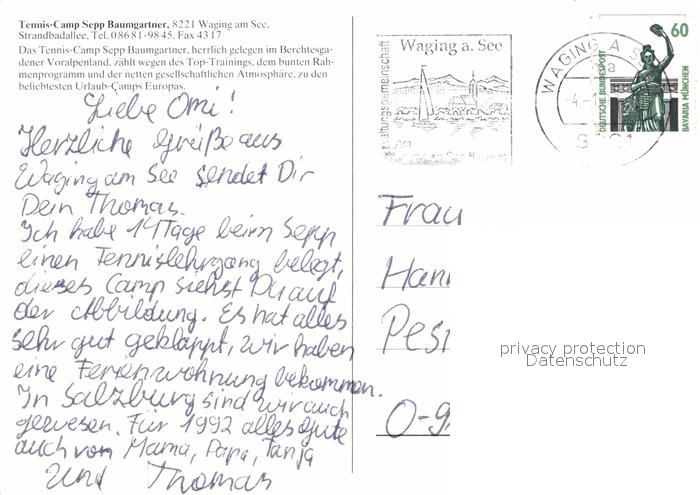 Tennis-Camp Sepp Baumgartner, 8221 Waging am See,
Strandbadallee, Tel. 0 86 81 - 98 45, Fax 43 17
Das Tennis-Camp Sepp Baumgartner, herrlich gelegen im Berchtesga-
dener Voralpenland, zählt wegen des Top-Trainings, dem bunten Rah-
menprogramm und der netten gesellschaftlichen Atmosphäre, zu den
beliebtesten Urlaub-Camps Europas.
Liebe Omi!
Herzliche Grüße aus
Waging am See sendet Dir
Dein Thomas.
Ich habe 14 Tage beim Sepp
einen Tennislehrgang belegt,
dieses Camp siehst Du auf
der Abbildung. Es hat alles
sehr gut geklappt, wir haben
eine Ferienwohnung bekommen.
In Salzburg sind wir auch
gewesen. Für 1992 alles Gute
auch von Mama, Papa, Tanja
Und Thomas
Waging a. See
WAGING A S
60
DEUTSCHE BUNDESPOST
BAVARIA MÜNCHEN
Frau
Han
Pes
O-9
privacy protection
Datenschutz